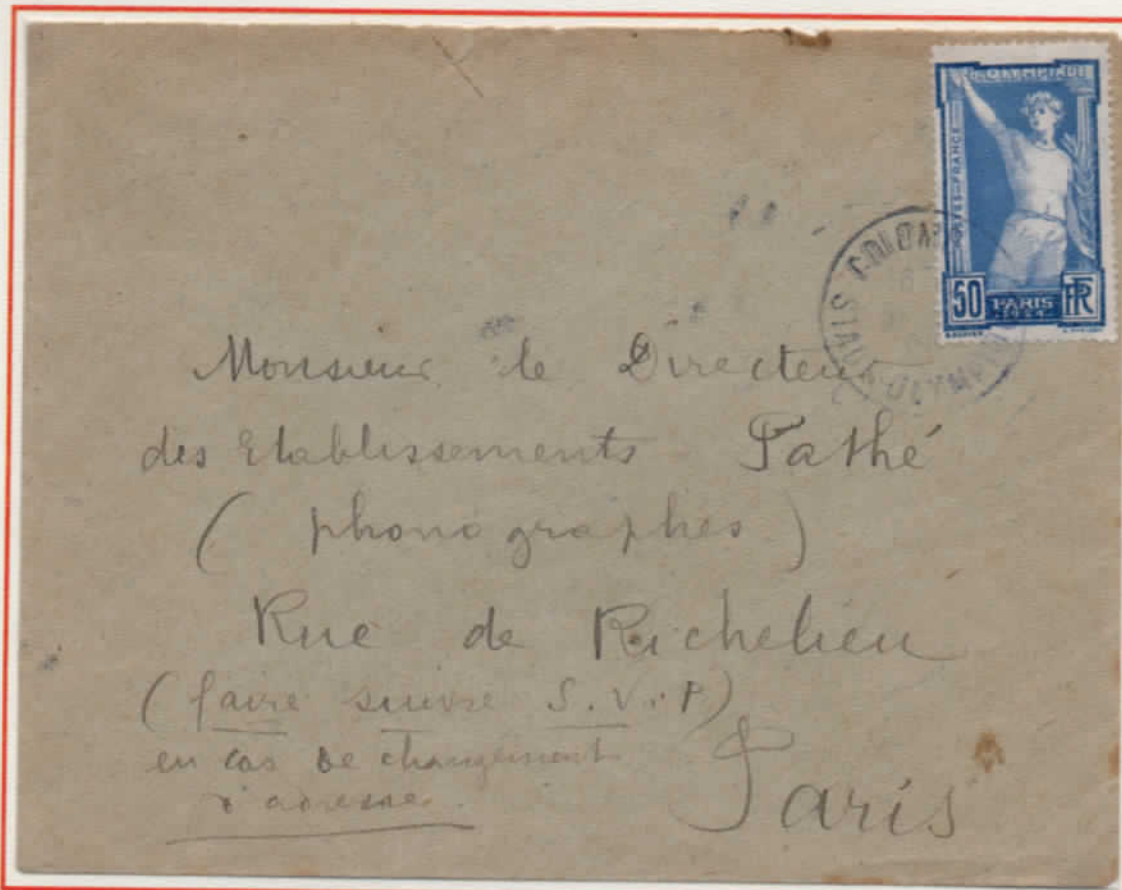 8e OLYMPIADE
POSTES-FRANCE
50 PARIS RF
1924
COLOMBES
Monsieur le Directeur
des Etablissements Pathé
( phonographes )
Rue de Richelieu
( faire suivre S.V.P)
en cas de changement
d'adresse.
Paris